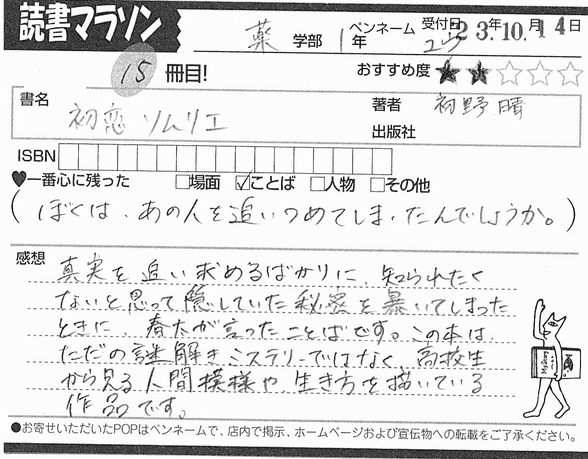 読書マラソン
薬 学部 1年 ペンネーム ユウ 受付日 23年10月14日
15 冊目! おすすめ度 ★★☆☆☆
書名 初恋ソムリエ 著者 初野晴
出版社
ISBN
♥一番心に残った □場面 ☑ことば □人物 □その他
(ぼくは、あの人を追いつめてしまったんでしょうか。)
感想 真実を追い求めるばかりに、知られたく
ないと思って隠していた秘密を暴いてしまった
ときに、春太が言ったことばです。この本は
ただの謎解きミステリーではなく、高校生
から見る人間模様や生き方を描いている
作品です。
●お寄せいただいたPOPはペンネームで、店内で掲示、ホームページおよび宣伝物への転載をご了承ください。